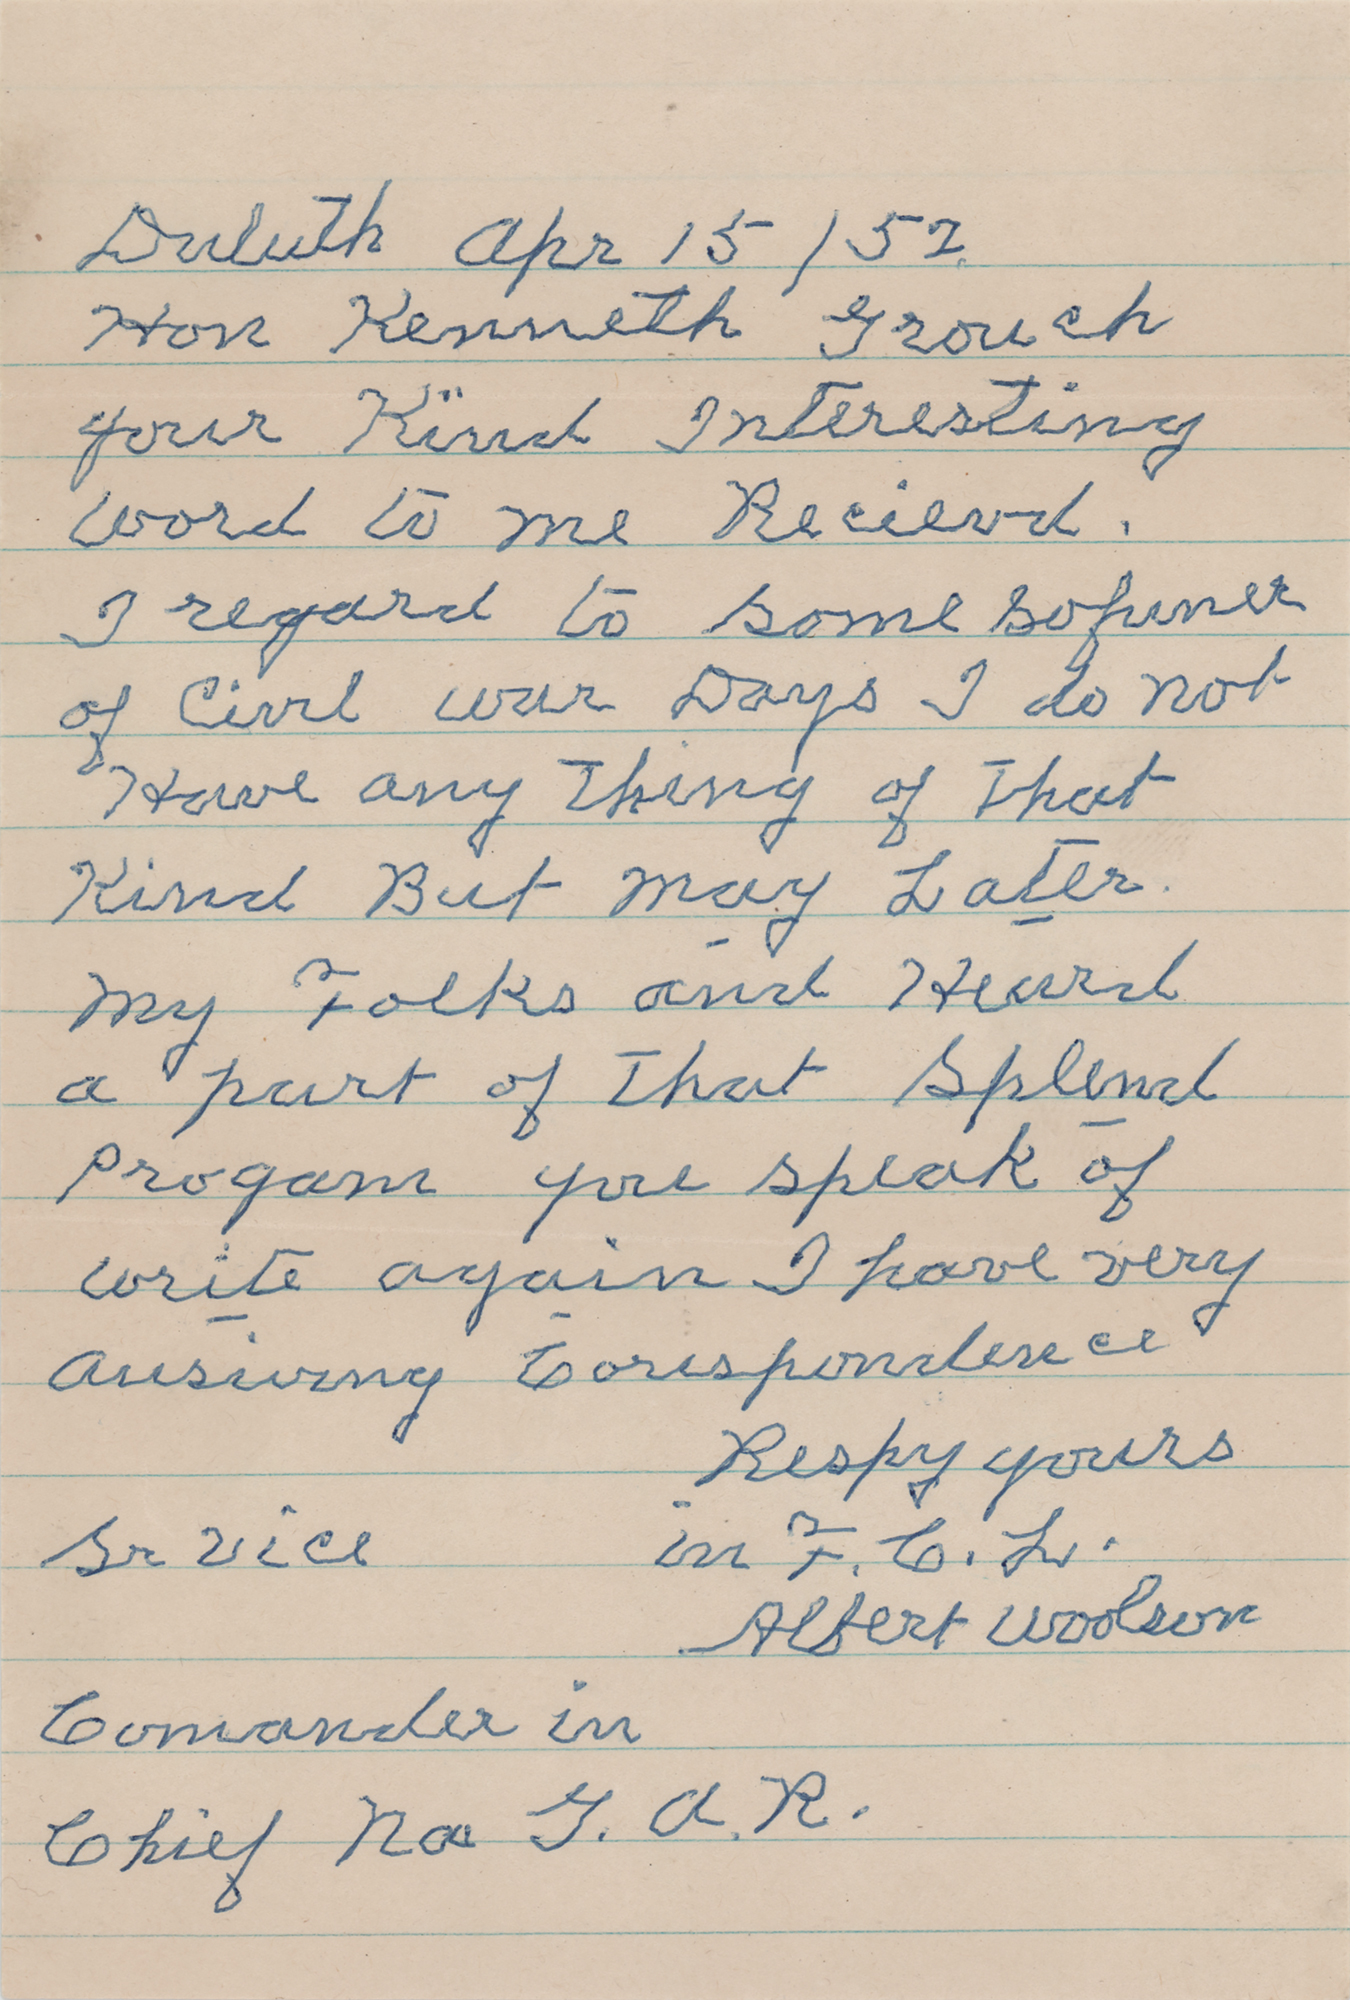 Duluth Apr 15 / 52.
Hon Kenneth Grouch
your Kind Interesting
word to me Recievd.
I regard to some sofuner
of Civil war Days I do not
Have any Thing of That
Kind But may Later.
My Folks and Heard
a part of That Splend
Progam you speak of
write again I have very
Ansiwng Corispondence
Respy yours
Sr Vice in F. C. L.
Albert Woolson
Comander in
Chief Na G. A. R.